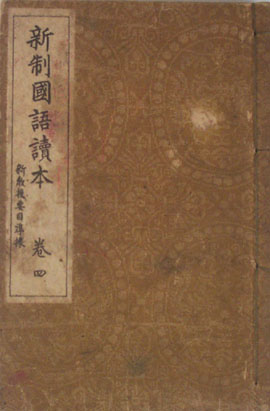 新制國語讀本
新教授要目準據
卷四